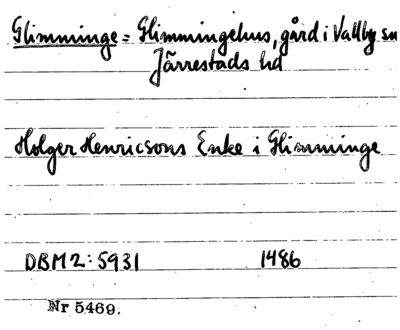 Glimminge = Glimmingehus, gård i Vallby sn
Järrestads hd
Holger Henricsons Enke i Glimminge
DBM2:5931 1486
Nr 5469.